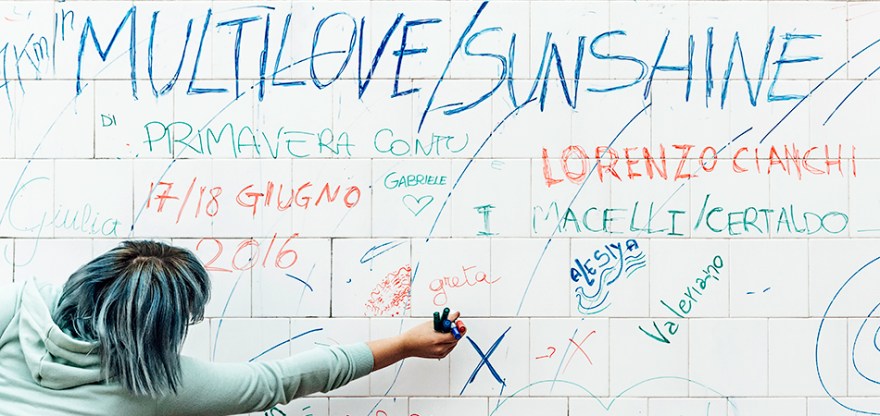 1Km/h
MULTILOVE/SUNSHINE
DI PRIMAVERA CONTU e LORENZO CIANCHI
17/18 GIUGNO
2016
GABRIELE
I MACELLI/CERTALDO
Giulia
greta
ALESIYA
Valeriano
X → X